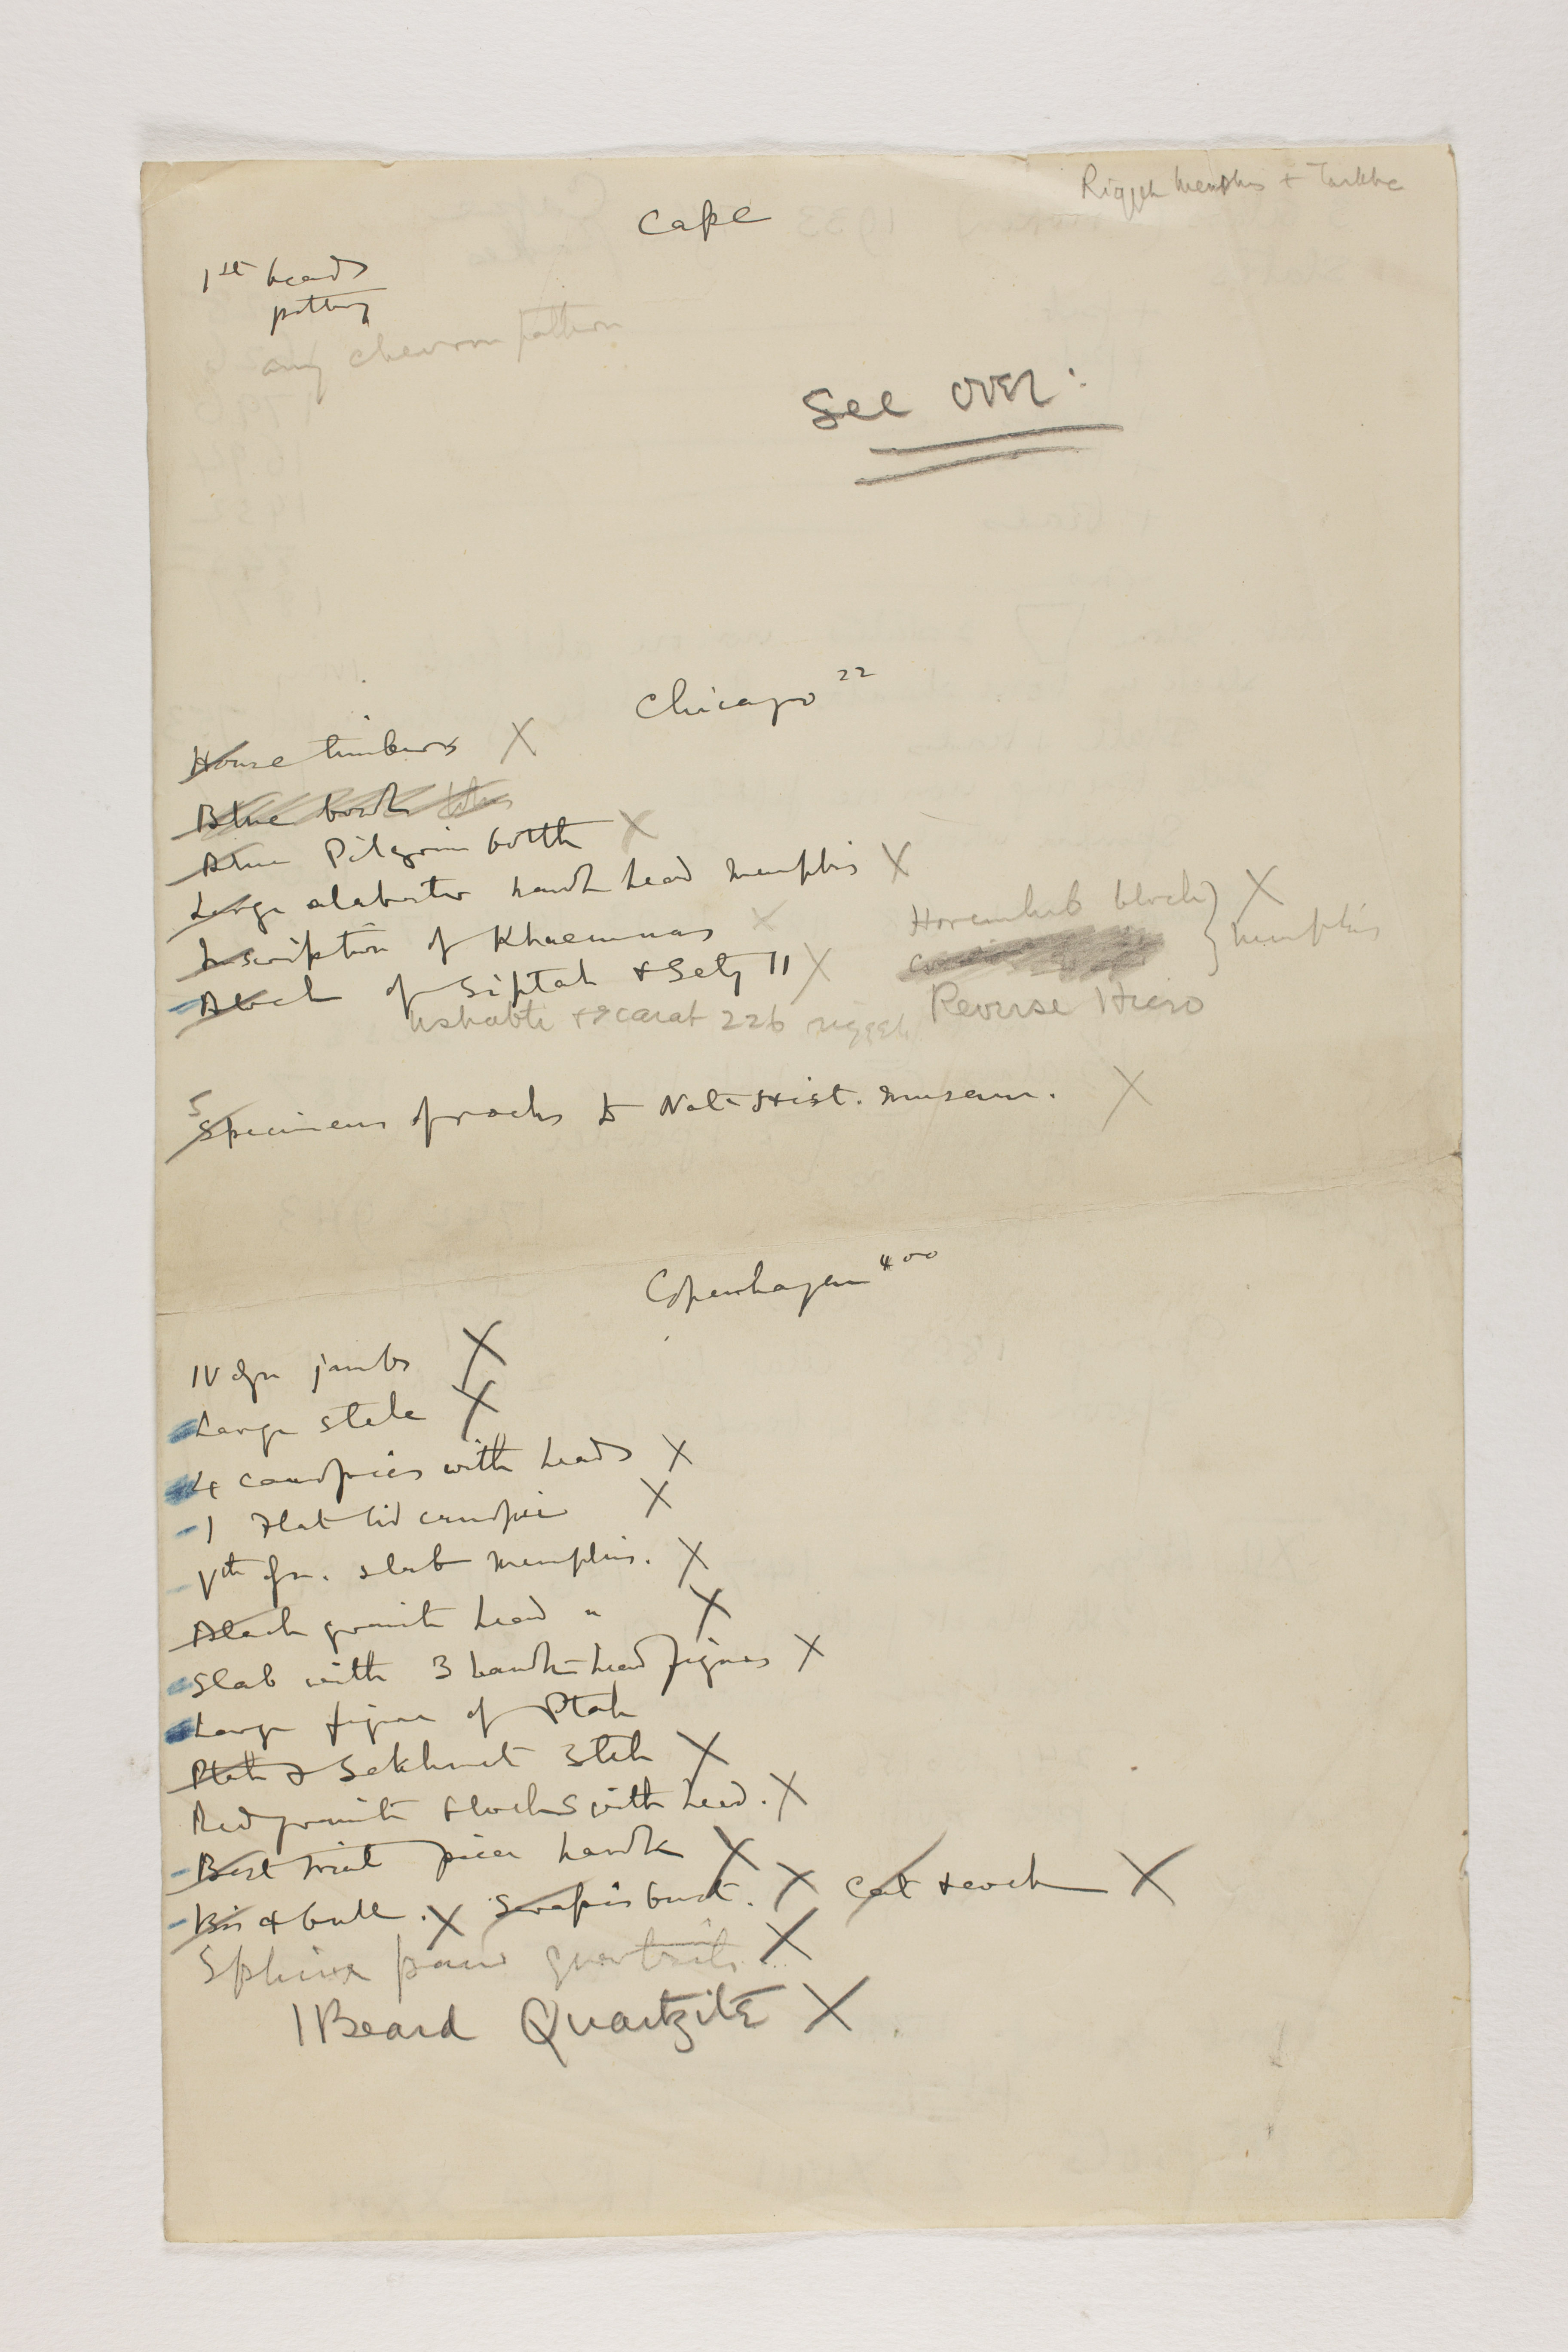 Riqqeh Memphis + Tarkhan
Cape
1st beads
pottery
any chevron pattern
See over:
Chicago 22
House timbers X
Blue bowl
Blue Pilgrim bottle X
Large alabaster hawk head Memphis X
Inscription of Khaemuas X
Horemheb block } X
Block of Siptah & Sety II X
Memphis
Ushabti + scarat 226 riqqeh
Reverse Hiero
5 Specimens of rocks to Nat. Hist. Museum. X
Copenhagen 400
IV dyn jambs X
Large stele X
4 canopics with heads X
1 Flat lid canopic X
Vth dyn. slab Memphis. X
Black granite head " X
Slab with 3 hawk-head figures X
Large figure of Ptah
Ptah & Sekhmet Stele X
Red granite blocks with head. X
Best trial piece hawk X
Bes & bull. X Serapis bust. X Cat & cock X
Sphinx paw quartzite X
1 Beard Quartzite X